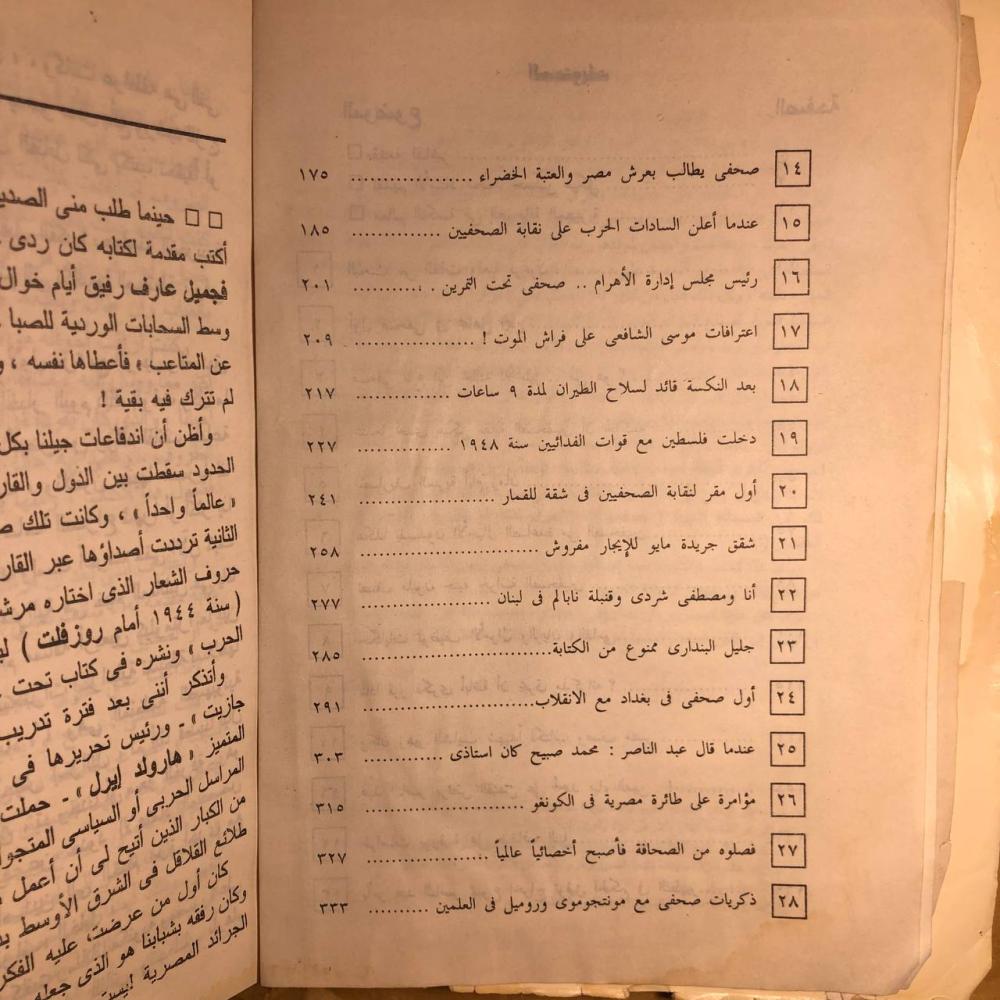 ١٤ صحفى يطالب بعرش مصر والعتبة الخضراء .................. ١٧٥
١٥ عندما أعلن السادات الحرب على نقابة الصحفيين .............. ١٨٥
١٦ رئيس مجلس إدارة الأهرام .. صحفى تحت التمرين . .......... ٢٠١
١٧ اعترافات موسى الشافعى على فراش الموت ! .................. ٢٠٩
١٨ بعد النكسة قائد لسلاح الطيران لمدة ٩ ساعات .............. ٢١٧
١٩ دخلت فلسطين مع قوات الفدائيين سنة ١٩٤٨ .............. ٢٢٧
٢٠ أول مقر لنقابة الصحفيين فى شقة للقمار .................... ٢٤١
٢١ شقق جريدة مايو للإيجار مفروش .......................... ٢٥٨
٢٢ أنا ومصطفى شردى وقنبلة نابالم فى لبنان .................... ٢٧٧
٢٣ جليل البندارى ممنوع من الكتابة............................ ٢٨٥
٢٤ أول صحفى فى بغداد مع الانقلاب.......................... ٢٩١
٢٥ عندما قال عبد الناصر : محمد صبيح كان استاذى ............ ٣٠٣
٢٦ مؤامرة على طائرة مصرية فى الكونغو ........................ ٣١٥
٢٧ فصلوه من الصحافة فأصبح أخصائياً عالمياً .................... ٣٢٧
٢٨ ذكريات صحفى مع مونتجوموى وروميل فى العلمين .......... ٣٣٣
□ □ حينما طلب منى الصدي
أكتب مقدمة لكتابه كان ردى
فجميل عارف رفيق أيام خوال
وسط السحابات الوردية للصبا
عن المتاعب ، فأعطاها نفسه ، و
لم تترك فيه بقية !
وأظن أن اندفاعات جيلنا بكل
الحدود سقطت بين الدول والقار
« عالماً واحداً » ، وكانت تلك ص
الثانية ترددت أصداؤها عبر القار
حروف الشعار الذى اختاره مرش
( سنة ١٩٤٤ أمام روزفلت )
الحرب » ونشره فى كتاب تحت
وأتذكر أننى بعد فترة تدريب
جازيت » - ورئيس تحريرها فى
المتميز « هارولد إيرل » - حملت
المراسل الحربى أو السياسى المتجوا
من الكبار الذين أتيح لى أن أعمل
طلائع القلاقل فى الشرق الأوسط
كان أول من عرضت عليه الفكر
وكان رفقه بشبابنا هو الذى جعله
الجرائد المصرية